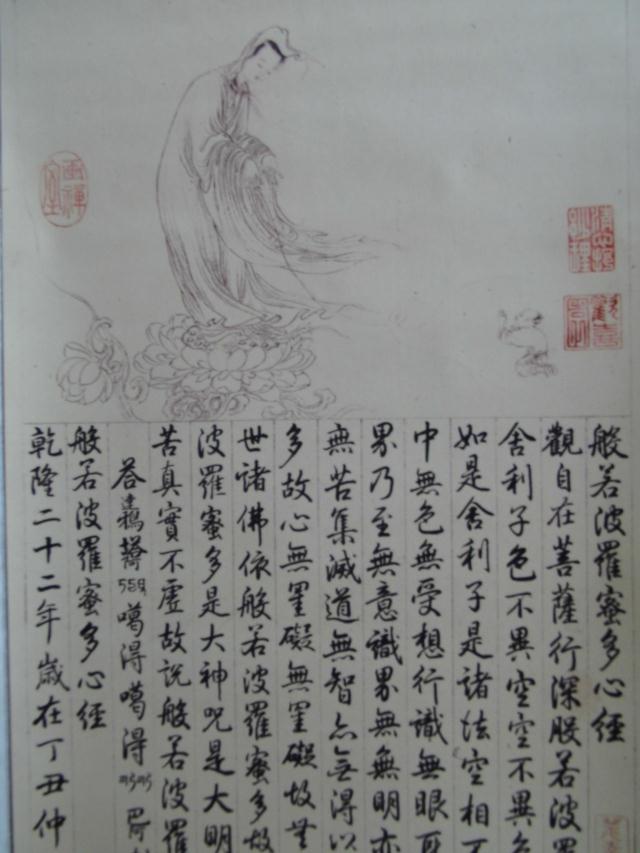 畫禪室
般若波羅蜜多心經
觀自在菩薩行深般若波羅
舍利子色不異空空不異色
如是舍利子是諸法空相不
中無色無受想行識無眼耳
界乃至無意識界無無明亦
無苦集滅道無智亦無得以
多故心無罣礙無罣礙故無
世諸佛依般若波羅蜜多故
波羅蜜多是大神咒是大明
苦真實不虛故說般若波羅
答噶得噶得
般若波羅蜜多心經
乾隆二十二年歲在丁丑仲